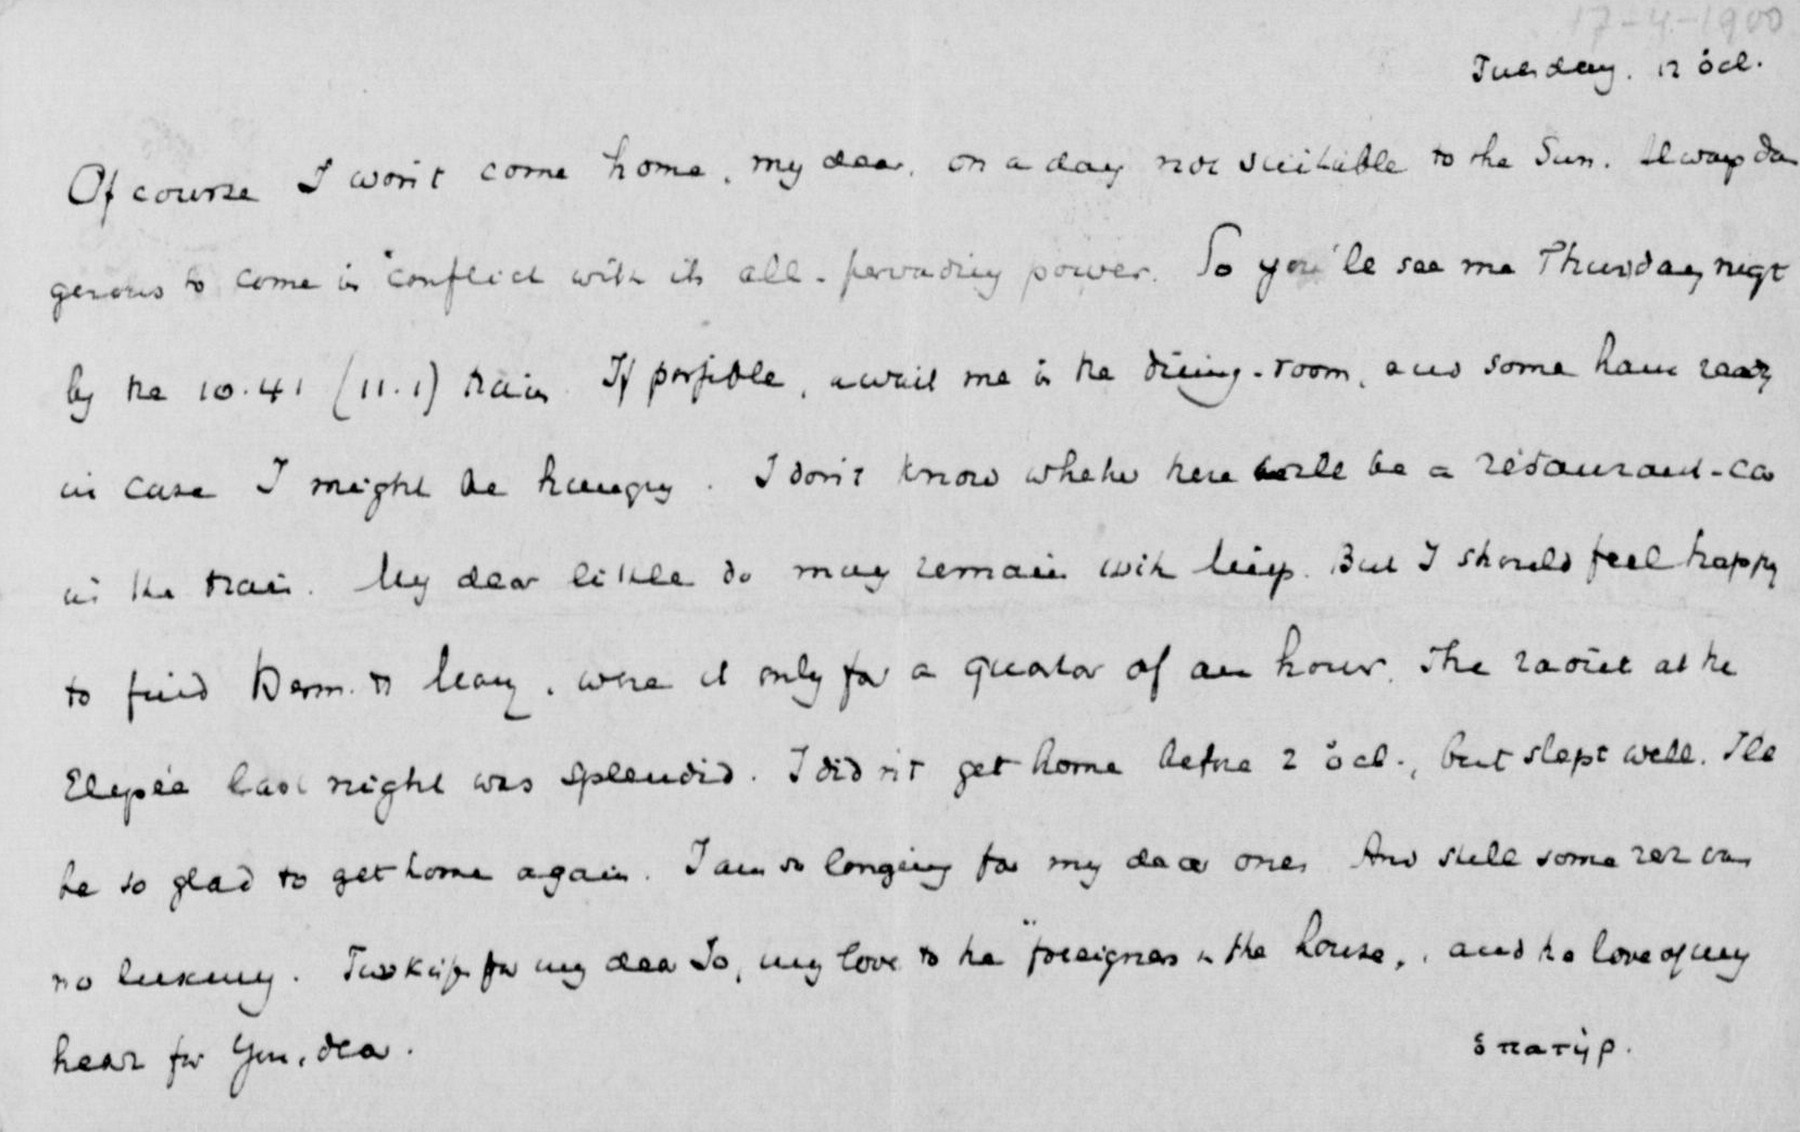 17-4-1900
Tuesday. 12 öcl.
Of course I won't come home, my dear, on a day not suitable to the Sun. Always dan
gerous to come in conflict with its all-pervading power. So you'le see me Thursday nigt
by the 10.41 (11.1) train. If possible, await me in the dining-room, and some ham ready
in case I might be hungry. I don't know whether there will be a restaurant-car
in the train. My dear little do may remain with
to find Herm. to were it only for a quarter of an hour. The raout at the
Elysée last night was splendid. I did n't get home before 2 öcl., but slept well. I'le
be so glad to get home again. I am so longing for my dear ones. And still some rest was
no luxury. Two kisses for my dear Jo, my love to the "foreigners in the house," and the love of my
heart for You, dear.
ὁ πατήρ.